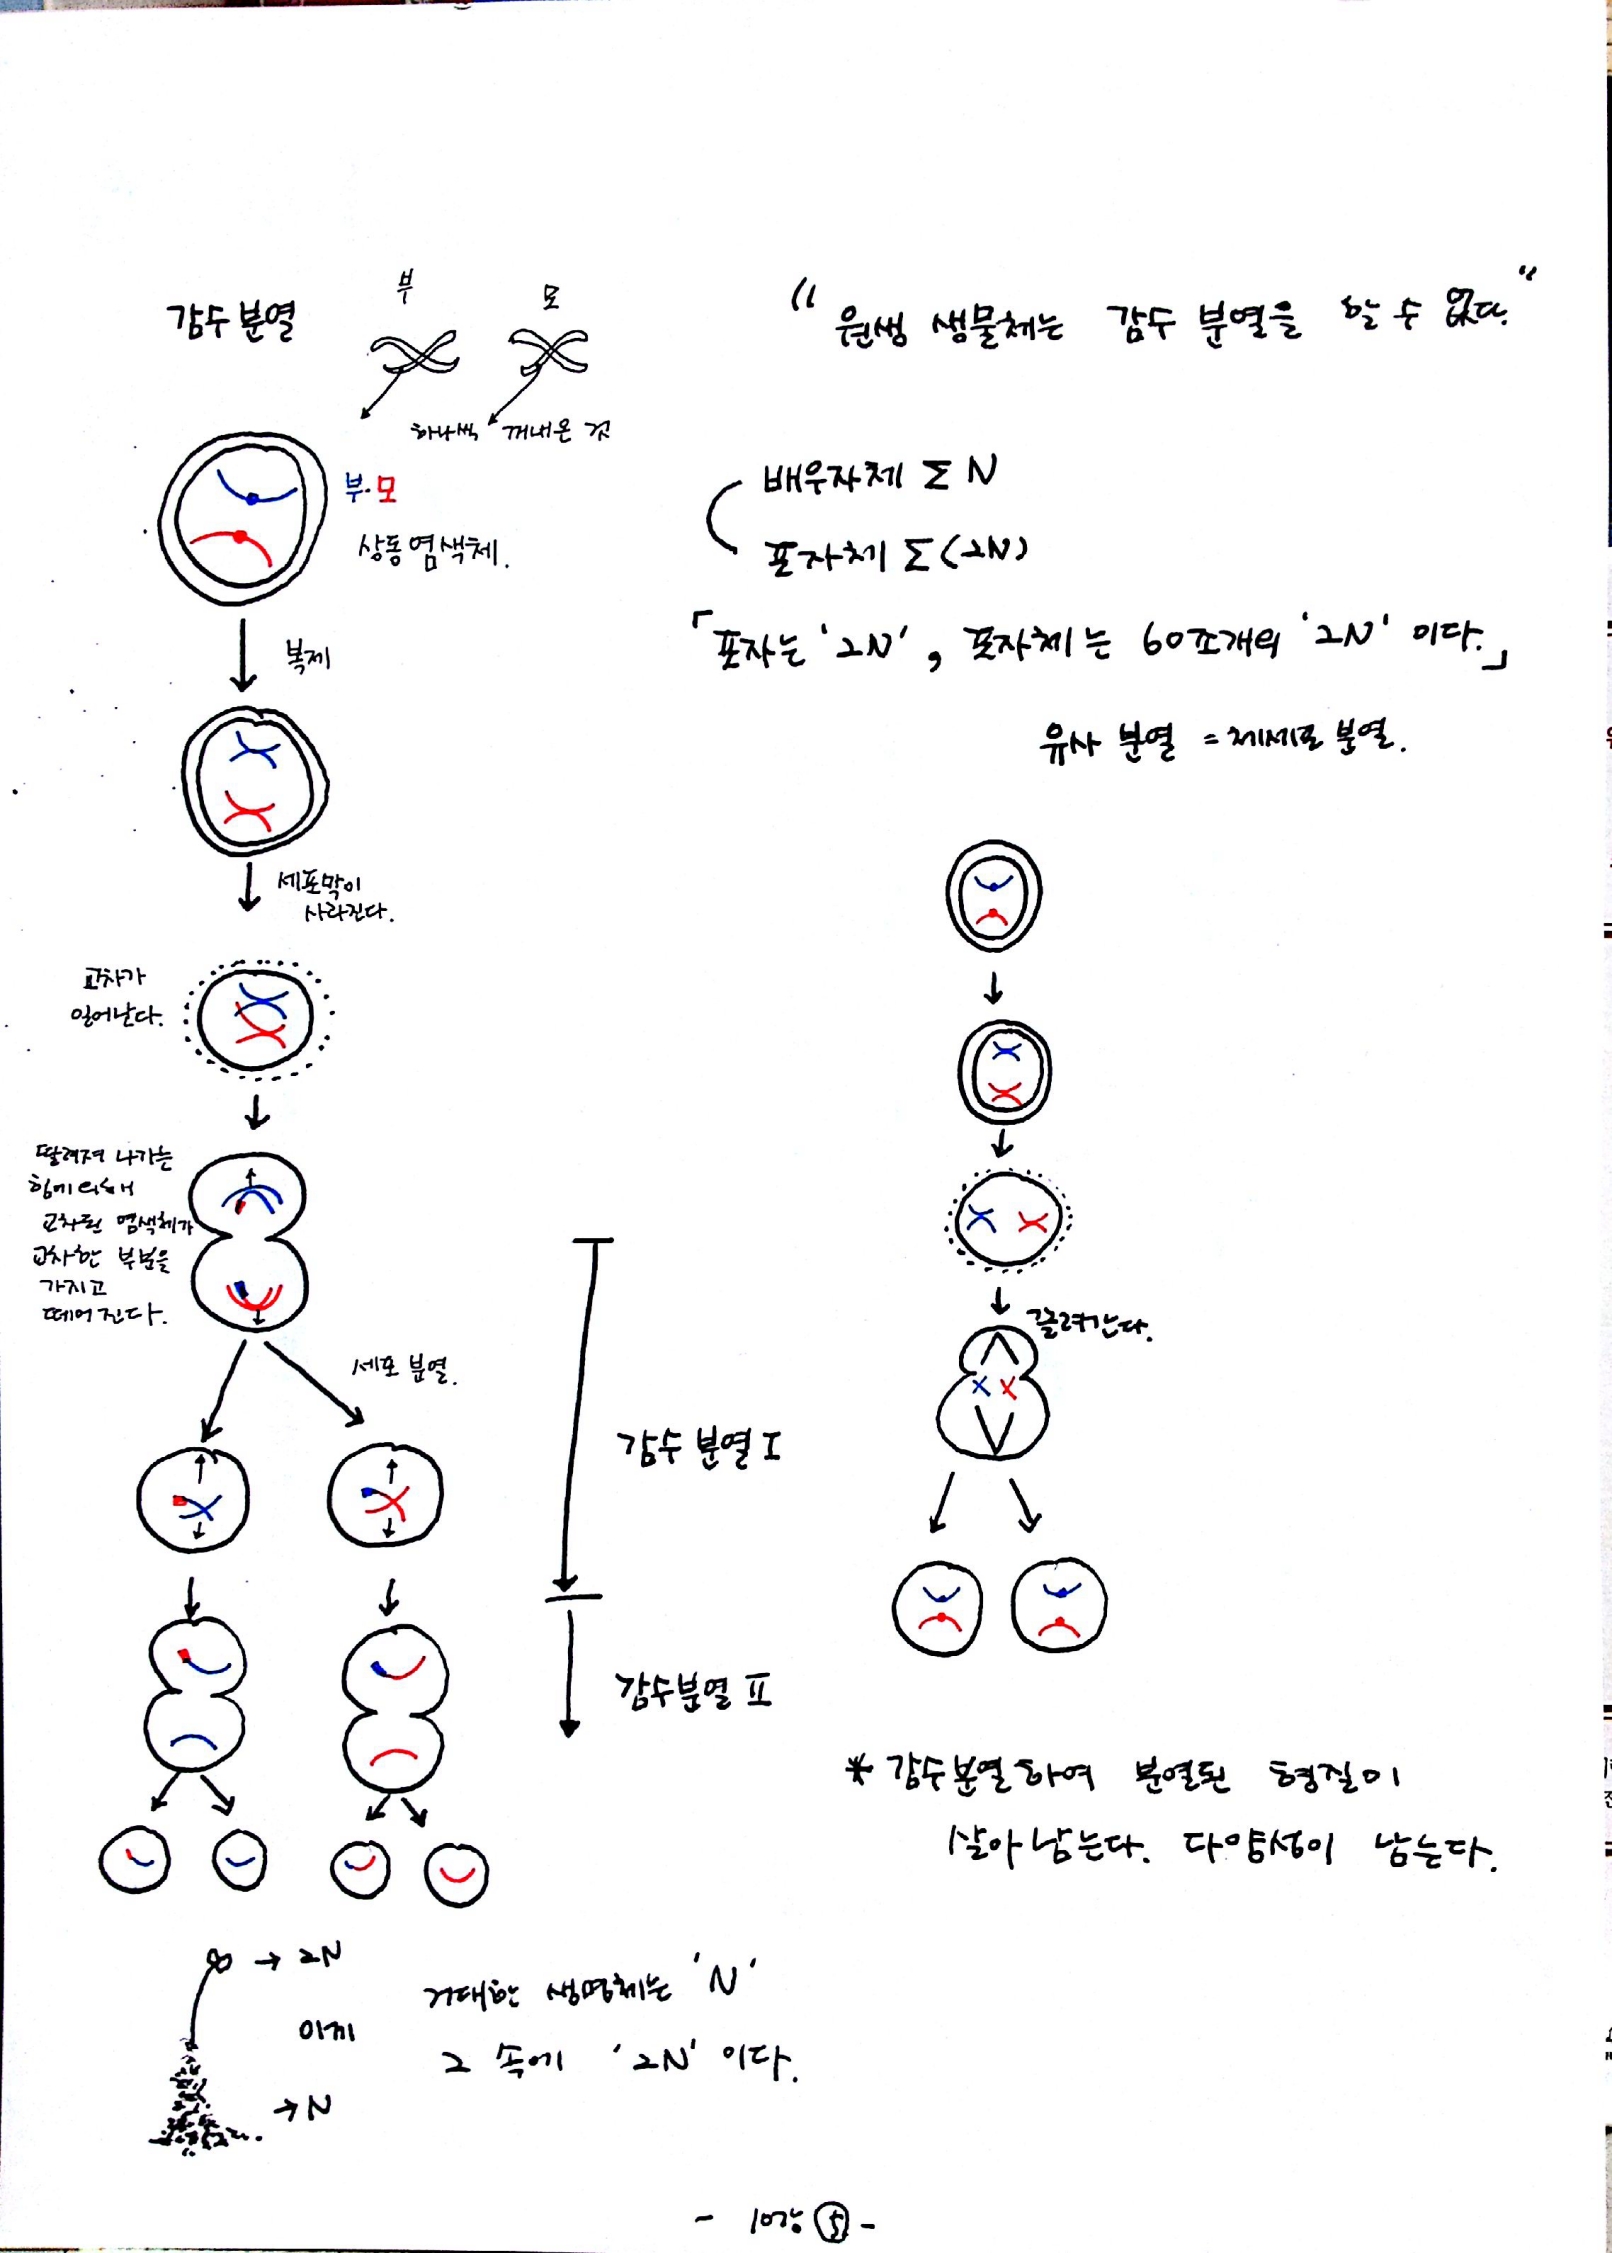 감수분열
부
모
하나씩 꺼내온 것
부·모
상동염색체.
복제
세포막이
사라진다.
교차가
일어난다.
딸려져 나가는
힘에 의해
교차된 염색체가
교차한 부분을
가지고
떼어진다.
세포 분열.
감수 분열 I
감수분열 II
→ 2N
이끼
→ N
거대한 생명체는 'N'
그 속에 '2N' 이다.
" 원생 생물체는 감수 분열을 할 수 없다. "
배우자체 Σ N
포자체 Σ (2N)
「포자는 '2N', 포자체는 60조개의 '2N' 이다.」
유사 분열 = 체세포 분열.
끌려간다.
* 감수분열하여 분열된 형질이
살아남는다. 다양성이 남는다.
- 10강 ⑤ -